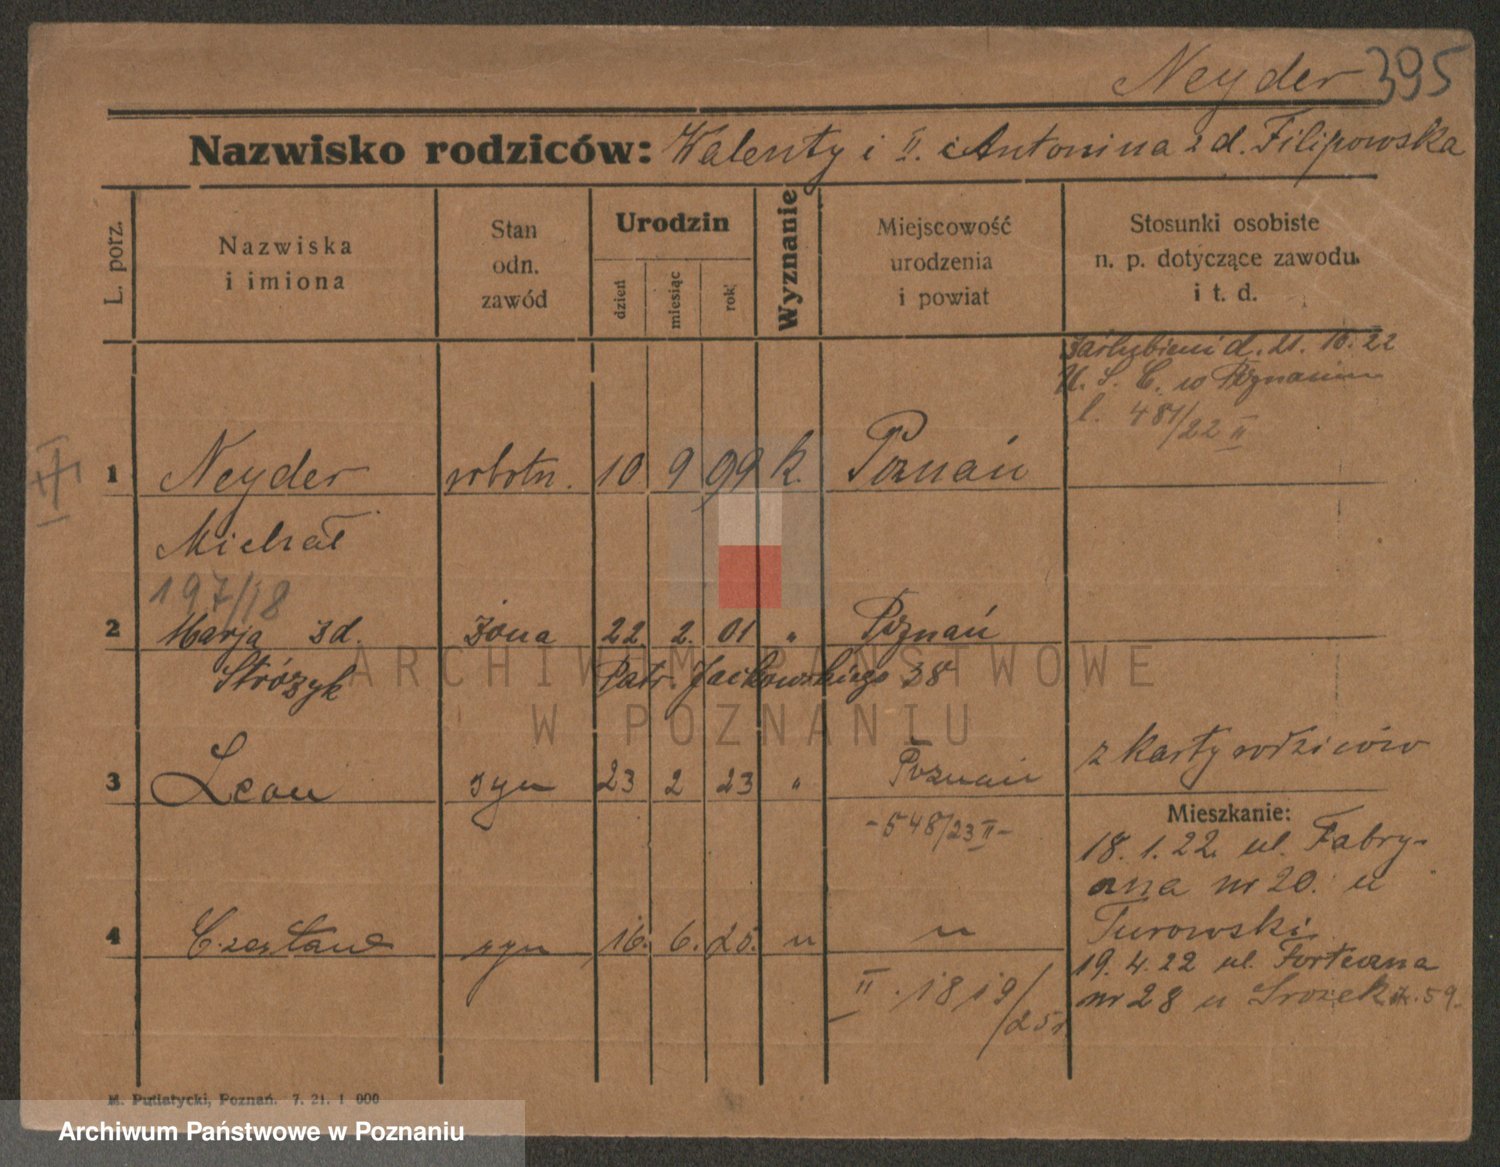 Neyder 395
Nazwisko rodziców: Walenty i II. Antonina zd. Filipowska
L. porz.
Nazwiska
i imiona
Stan
odn.
zawód
Urodzin
dzień
miesiąc
rok
Wyznanie
Miejscowość
urodzenia
i powiat
Stosunki osobiste
n. p. dotyczące zawodu.
i t. d.
Zaślubieni d. 21. 10. 22
U. S. C. w Poznaniu
l. 481/22 II
1 Neyder robotn. 10 9 99 k. Poznań
Michał
197/18
2 Marja zd. żona 22 2. 01 " Poznań
Stróżyk Patr. Jackowskiego 38
3 Leon syn 23 2 23 " Poznań z karty rodziców
- 548/23 II -
Mieszkanie:
18. 1. 22. ul. Fabry-
czna nr 20. u
Turowski
4 Czesław syn 16. 6. 25. " "
19. 4. 22 ul. Forteczna
nr 28 u 59.
II. 1819/25r.
M. Putiatycki, Poznań. 7. 21. 1 000
ARCHIWUM PAŃSTWOWE
W POZNANIU
Archiwum Państwowe w Poznaniu